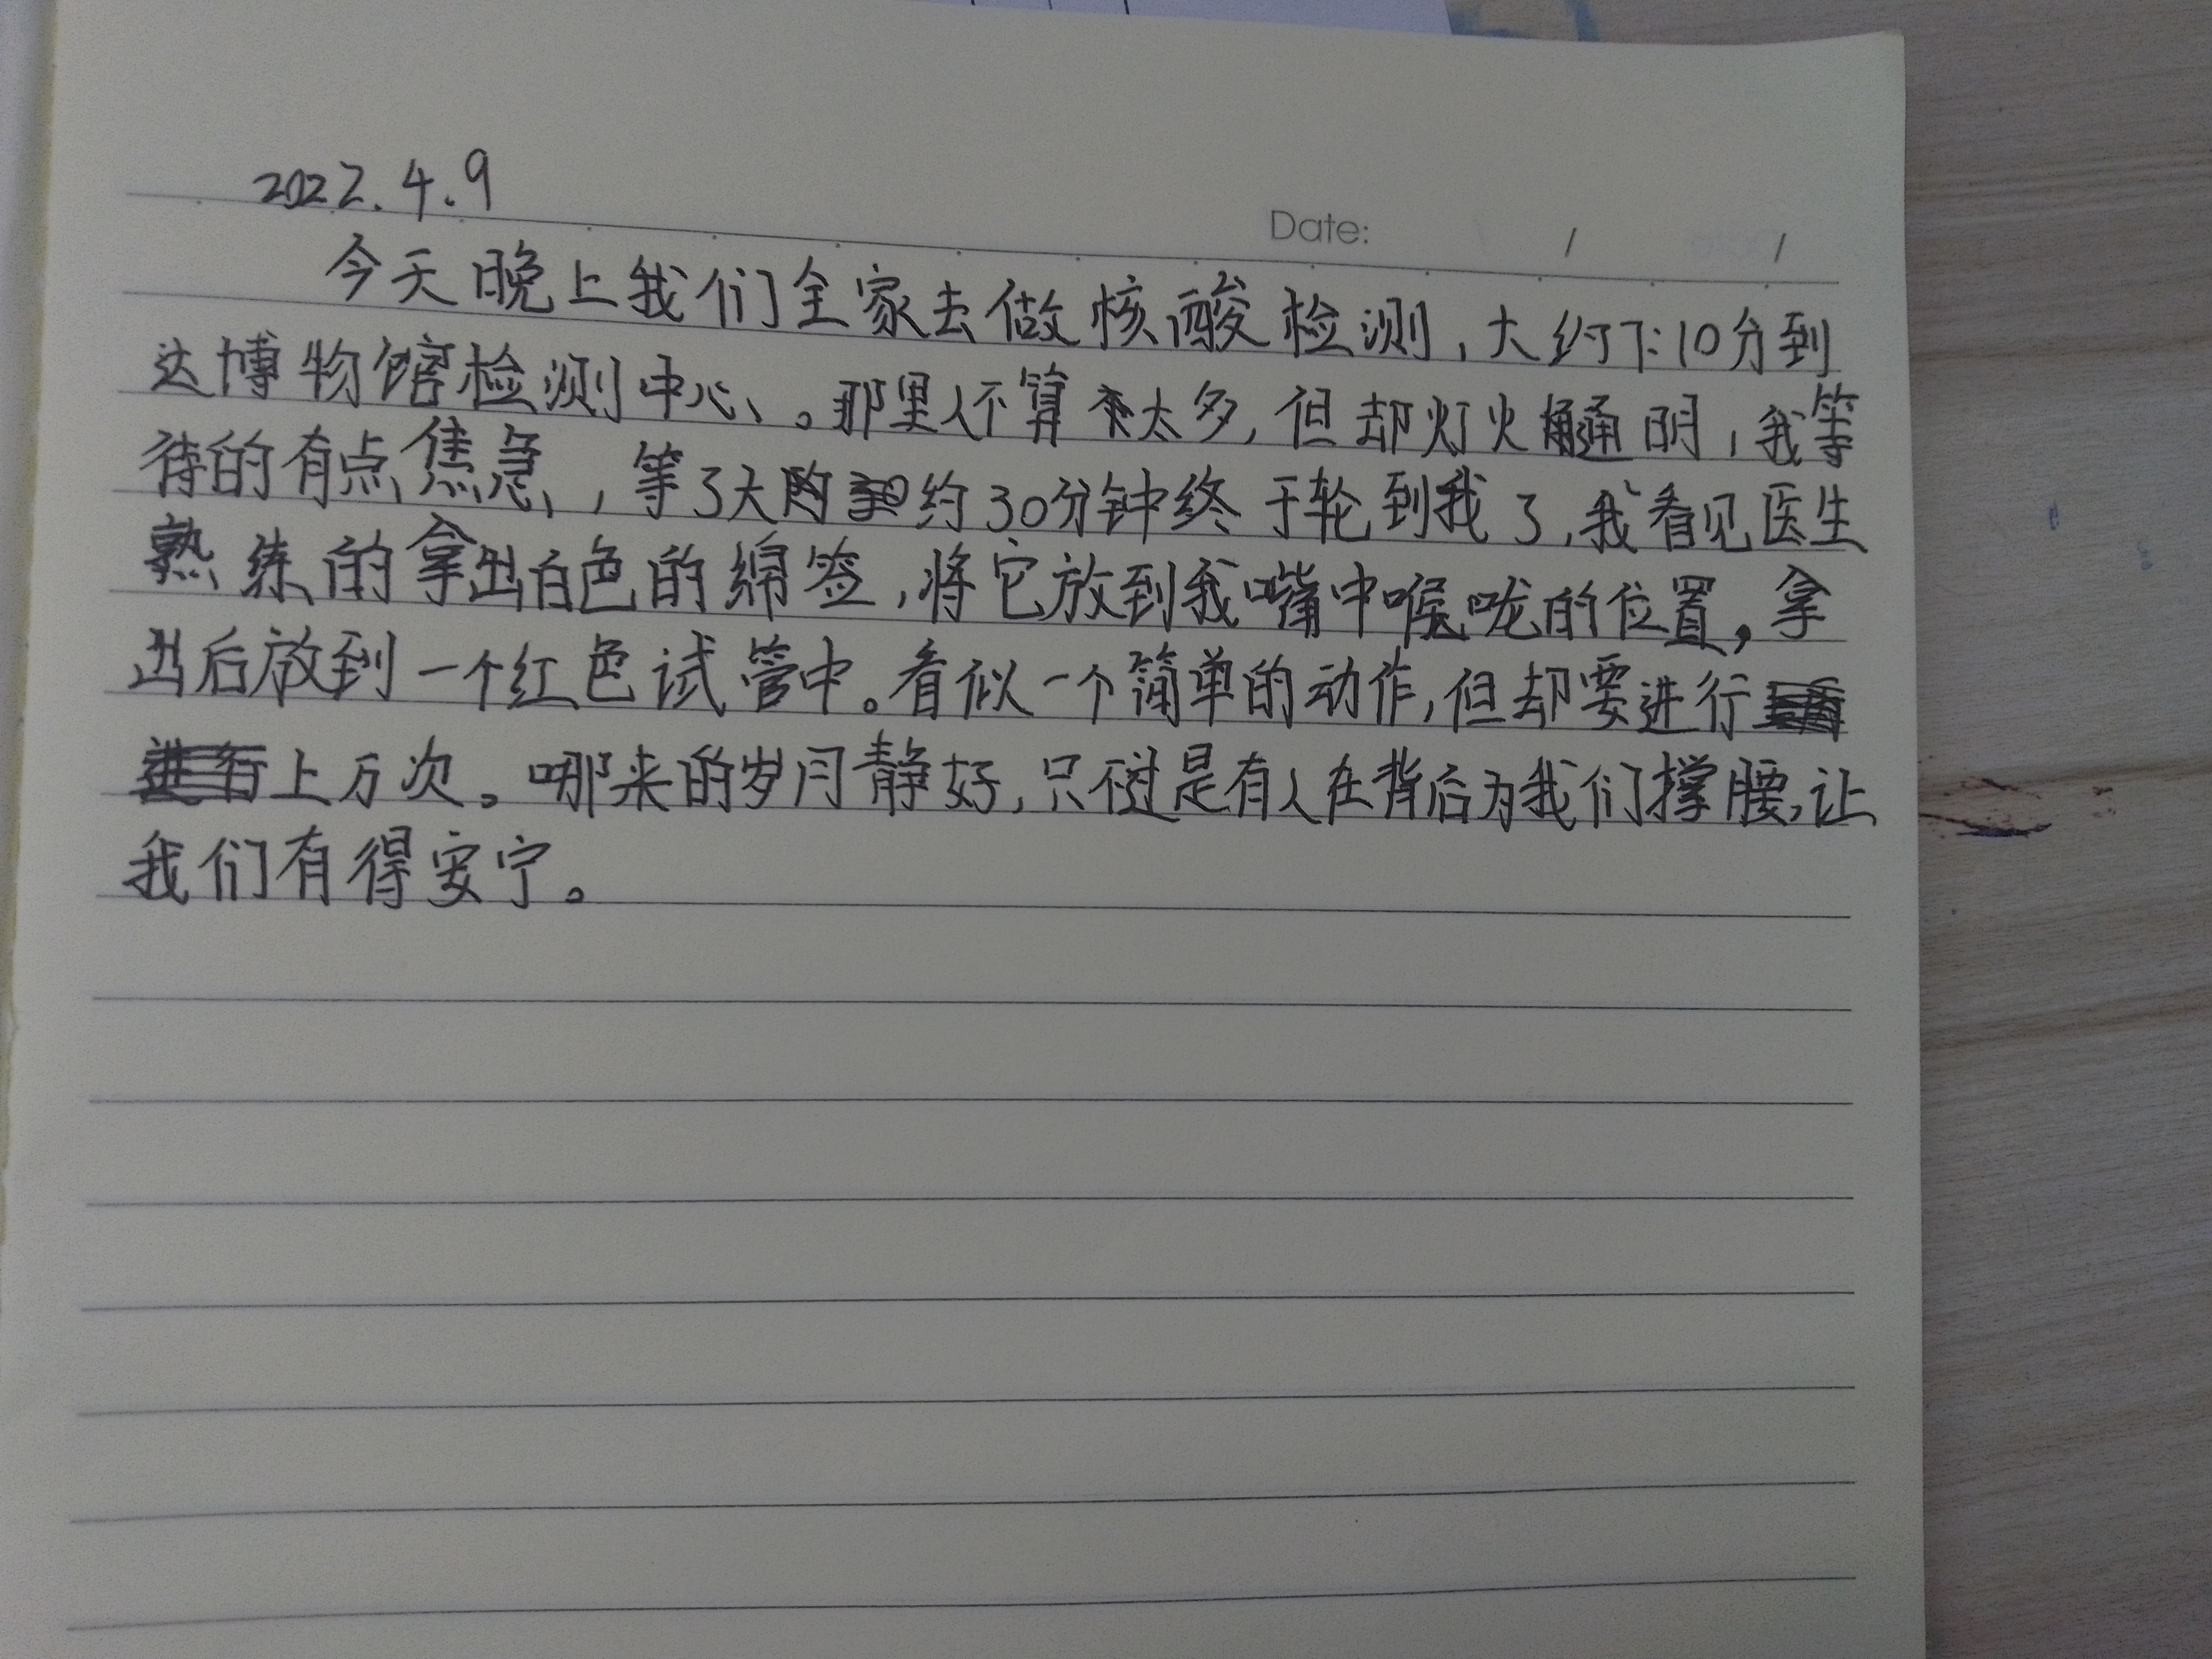 2022.4.9
Date: / /
今天晚上我们全家去做核酸检测，大约7:10分到
达博物馆检测中心。那里人不算太多，但却灯火通明，我等
待的有点焦急，等了大约30分钟终于轮到我了，我看见医生
熟练的拿出白色的绵签，将它放到我嘴中喉咙的位置，拿
出后放到一个红色试管中。看似一个简单的动作，但却要进行
上万次。哪来的岁月静好，只不过是有人在背后为我们撑腰，让
我们有得安宁。